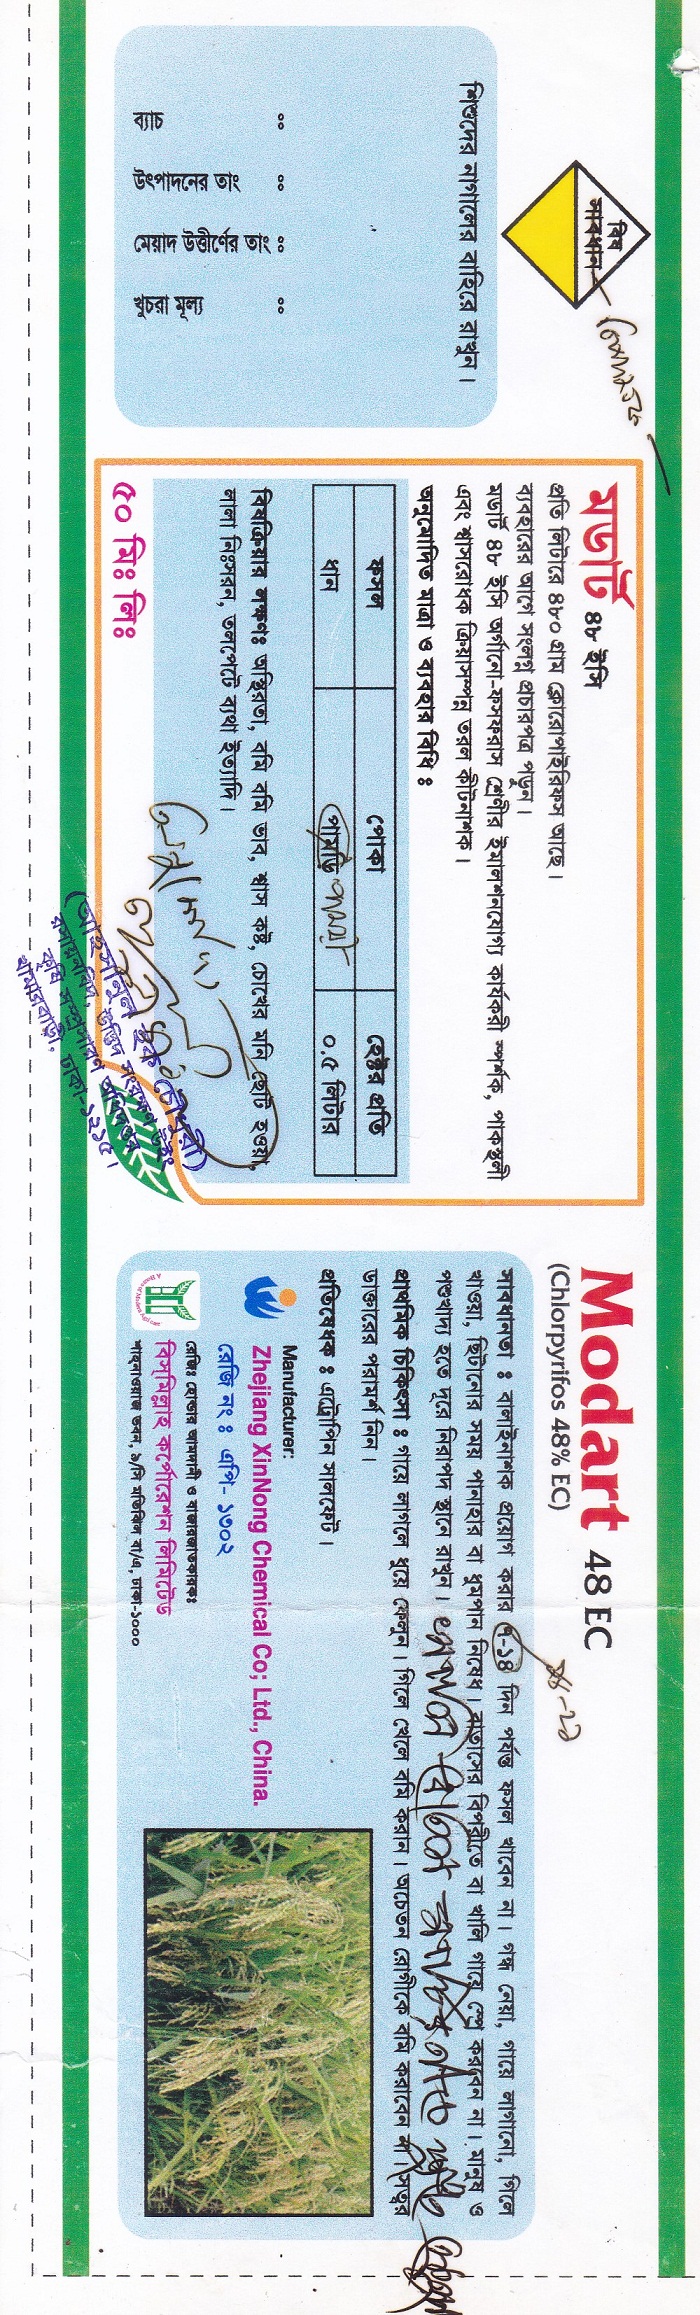 বিষ
সাবধান
শিশুদের নাগালের বাহিরে রাখুন।
ব্যাচ :
উৎপাদনের তাং :
মেয়াদ উত্তীর্ণের তাং :
খুচরা মূল্য :
মডার্ট ৪৮ ইসি
প্রতি লিটারে ৪৮০ গ্রাম ক্লোরোপাইরিফস আছে।
ব্যবহারের আগে সংলগ্ন প্রচারপত্র পড়ুন।
মডার্ট ৪৮ ইসি অর্গানো-ফসফরাস শ্রেণীর ইমালশনযোগ্য কার্যকরী স্পর্শক, পাকস্থলী
এবং শ্বাসরোধক ক্রিয়াসম্পন্ন তরল কীটনাশক।
অনুমোদিত মাত্রা ও ব্যবহার বিধি :
ফসল পোকা হেক্টর প্রতি
ধান পামরি ০.৫ লিটার
বিষক্রিয়ার লক্ষণঃ অস্থিরতা, বমি বমি ভাব, শ্বাস কষ্ট, চোখের মনি ছোট হওয়া,
লালা নিঃসরন, তলপেটে ব্যথা ইত্যাদি।
৫০ মিঃ লিঃ
(আহসানুল হক চৌধুরী)
রসায়নবিদ, উদ্ভিদ সংরক্ষণ উইং
কৃষি সম্প্রসারণ অধিদপ্তর
খামারবাড়ী, ঢাকা-১২১৫।
Modart 48 EC
(Chlorpyrifos 48% EC)
সাবধানতা : বালাইনাশক প্রয়োগ করার ৭-১৪ দিন পর্যন্ত ফসল খাবেন না। গন্ধ নেয়া, গায়ে লাগানো, গিলে
খাওয়া, ছিটানোর সময় পানাহার বা ধুমপান নিষেধ। বাতাসের বিপরীতে বা খালি গায়ে স্প্রে করবেন না। মানুষ ও
পশুখাদ্য হতে দূরে নিরাপদ স্থানে রাখুন।
প্রাথমিক চিকিৎসা : গায়ে লাগলে ধুয়ে ফেলুন। গিলে খেলে বমি করান। অচেতন রোগীকে বমি করাবেন না। সত্ত্বর
ডাক্তারের পরামর্শ নিন।
প্রতিষেধক : এট্রোপিন সালফেট।
Manufacturer:
Zhejiang XinNong Chemical Co; Ltd., China.
রেজি নং : এপি- ১৩০২
রেজিঃ হোল্ডার আমদানী ও বাজারজাতকারকঃ
বিসমিল্লাহ কর্পোরেশন লিমিটেড
শাহনাওয়াজ ভবন, ৯/সি মতিঝিল বা/এ, ঢাকা-১০০০